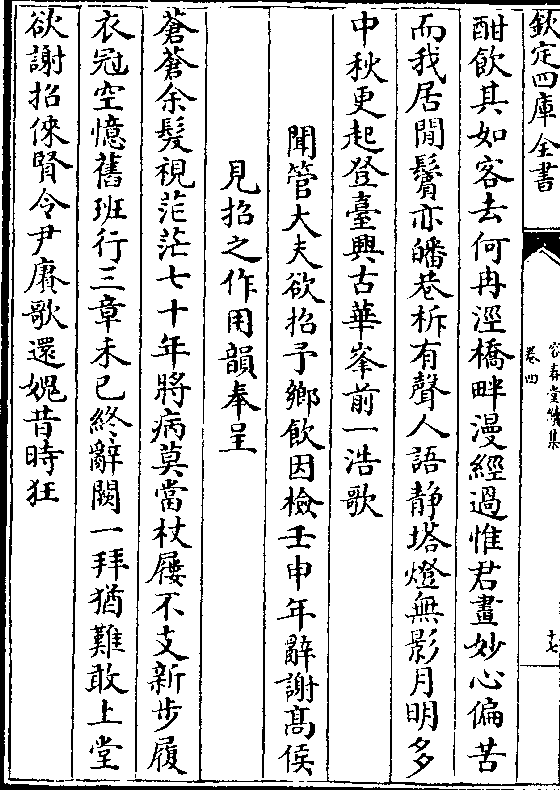 欽定四庫全書
容春堂續集
卷四
十七
酣飲其如客去何冉涇橋畔漫經過惟君畫妙心偏苦
而我居閒鬢亦皤巷柝有聲人語静塔燈無影月明多
中秋更起登臺興古華峯前一浩歌
聞管大夫欲招予鄉飲因檢壬申年辭謝髙侯
見招之作用韻奉呈
蒼蒼余髮視茫茫七十年將病莫當杖屨不支新步履
衣冠空憶舊班行三章未已終辭闕一拜猶難敢上堂
欲謝招倈賢令尹賡歌還媿昔時狂